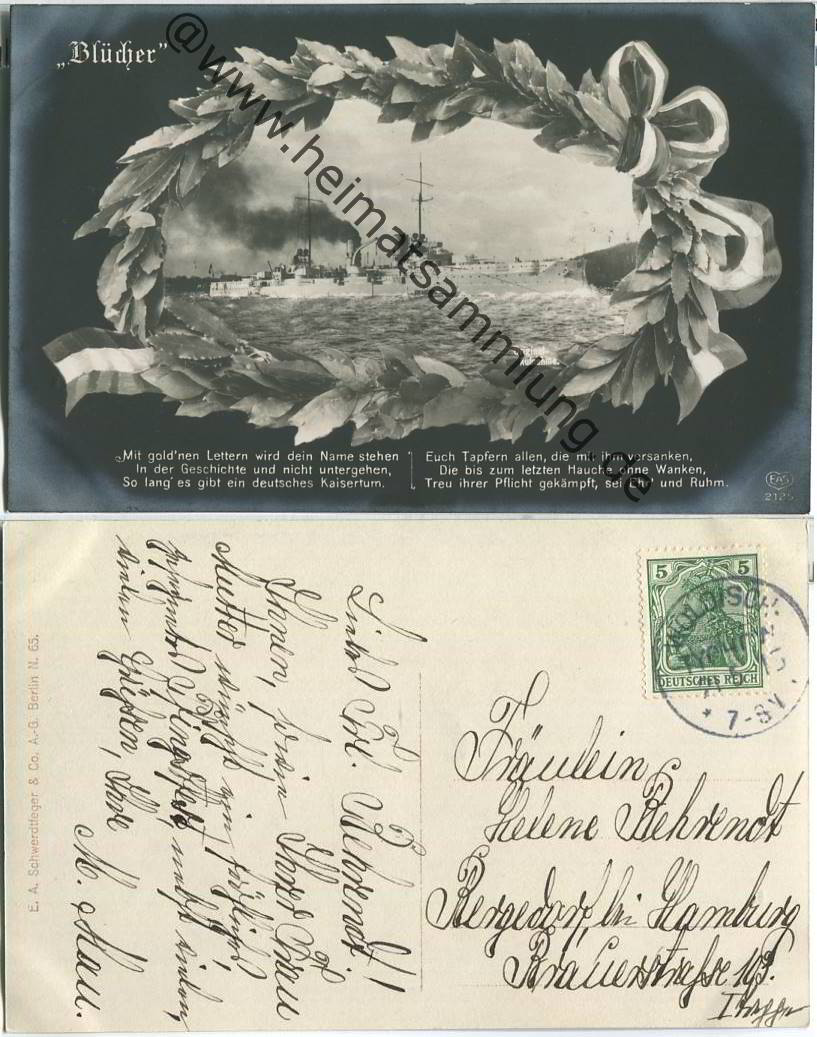 „Blücher"
@www.heimatsammlung.de
„Mit gold'nen Lettern wird dein Name stehen
In der Geschichte und nicht untergehen,
So lang' es gibt ein deutsches Kaisertum.
Euch Tapfern allen, die mit ihm versanken,
Die bis zum letzten Hauche ohne Wanken,
Treu ihrer Pflicht gekämpft, sei Ehr' und Ruhm.
EAS
2125
E. A. Schwerdtfeger & Co. A.-G. Berlin N. 65.
Liebes Frl. Behrendt!
Ihnen, sowie Ihrer Frau
Mutter wünscht ein fröhliches
Pfingstfest nebst vielen,
vielen Grüßen, Ihre
M.
5 5
DEUTSCHES REICH
* 7-8V
Fräulein
Helene Behrendt
Bergedorf bei Hamburg
Brauerstraße 103.